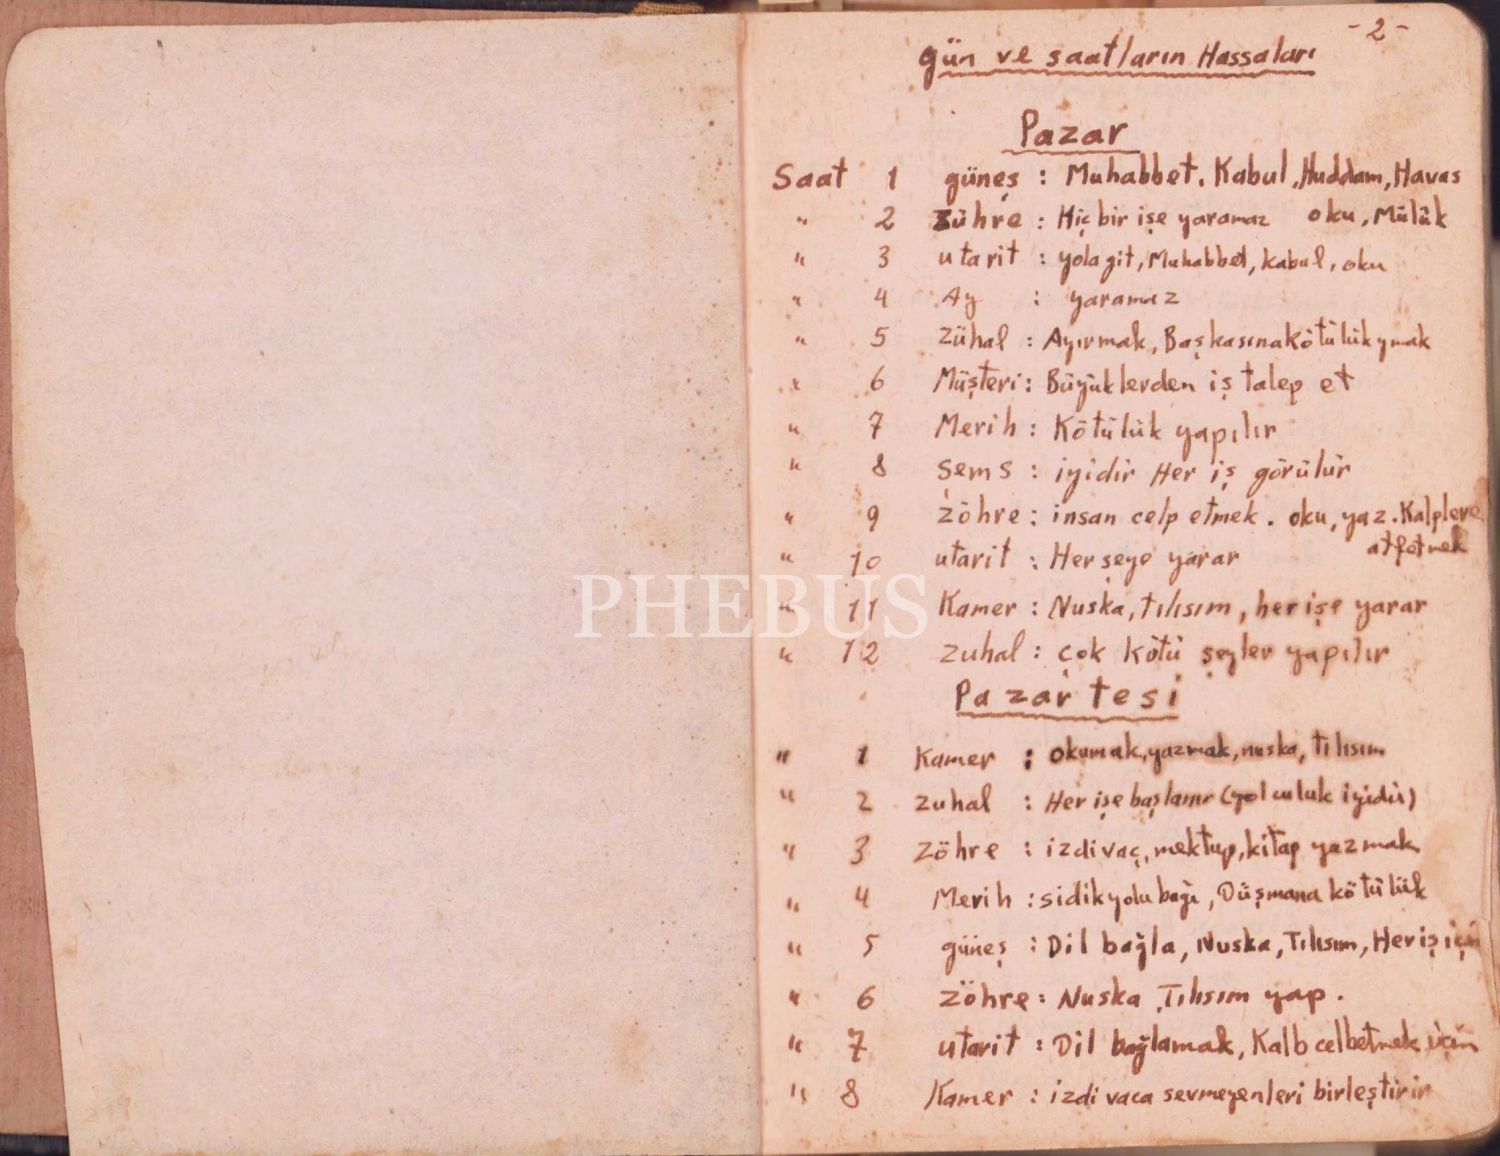 -2-
gün ve saatların Hassaları
Pazar
Saat 1 güneş : Muhabbet, Kabul, Huddam, Havas
" 2 Zühre : Hiç bir işe yaramaz oku, Mülûk
" 3 utarit : yola git, Muhabbet, kabul, oku
" 4 Ay : yaramaz
" 5 Zühal : Ayırmak, Başkasına kötülük ymak
" 6 Müşteri : Büyüklerden iş talep et
" 7 Merih : Kötülük yapılır
" 8 şems : iyidir Her iş görülür
" 9 zöhre : insan celp etmek. oku, yaz. Kalplere
atfetmek
" 10 utarit : Her şeye yarar
" 11 Kamer : Nuska, tılısım, her işe yarar
" 12 zuhal : çok kötü şeyler yapılır
PHEBUS
Pazartesi
" 1 Kamer : okumak, yazmak, nuska, tılısım
" 2 zuhal : Her işe başlanır (yolculuk iyidir)
" 3 Zöhre : izdivaç, mektup, kitap yazmak
" 4 Merih : sidik yolu bağı, Düşmana kötülük
" 5 güneş : Dil bağla, Nuska, Tılısım, Her iş için
" 6 Zöhre : Nuska Tılısım yap.
" 7 utarit : Dil bağlamak, Kalb celbetmek için
" 8 Kamer : izdivaca sevmeyenleri birleştirir